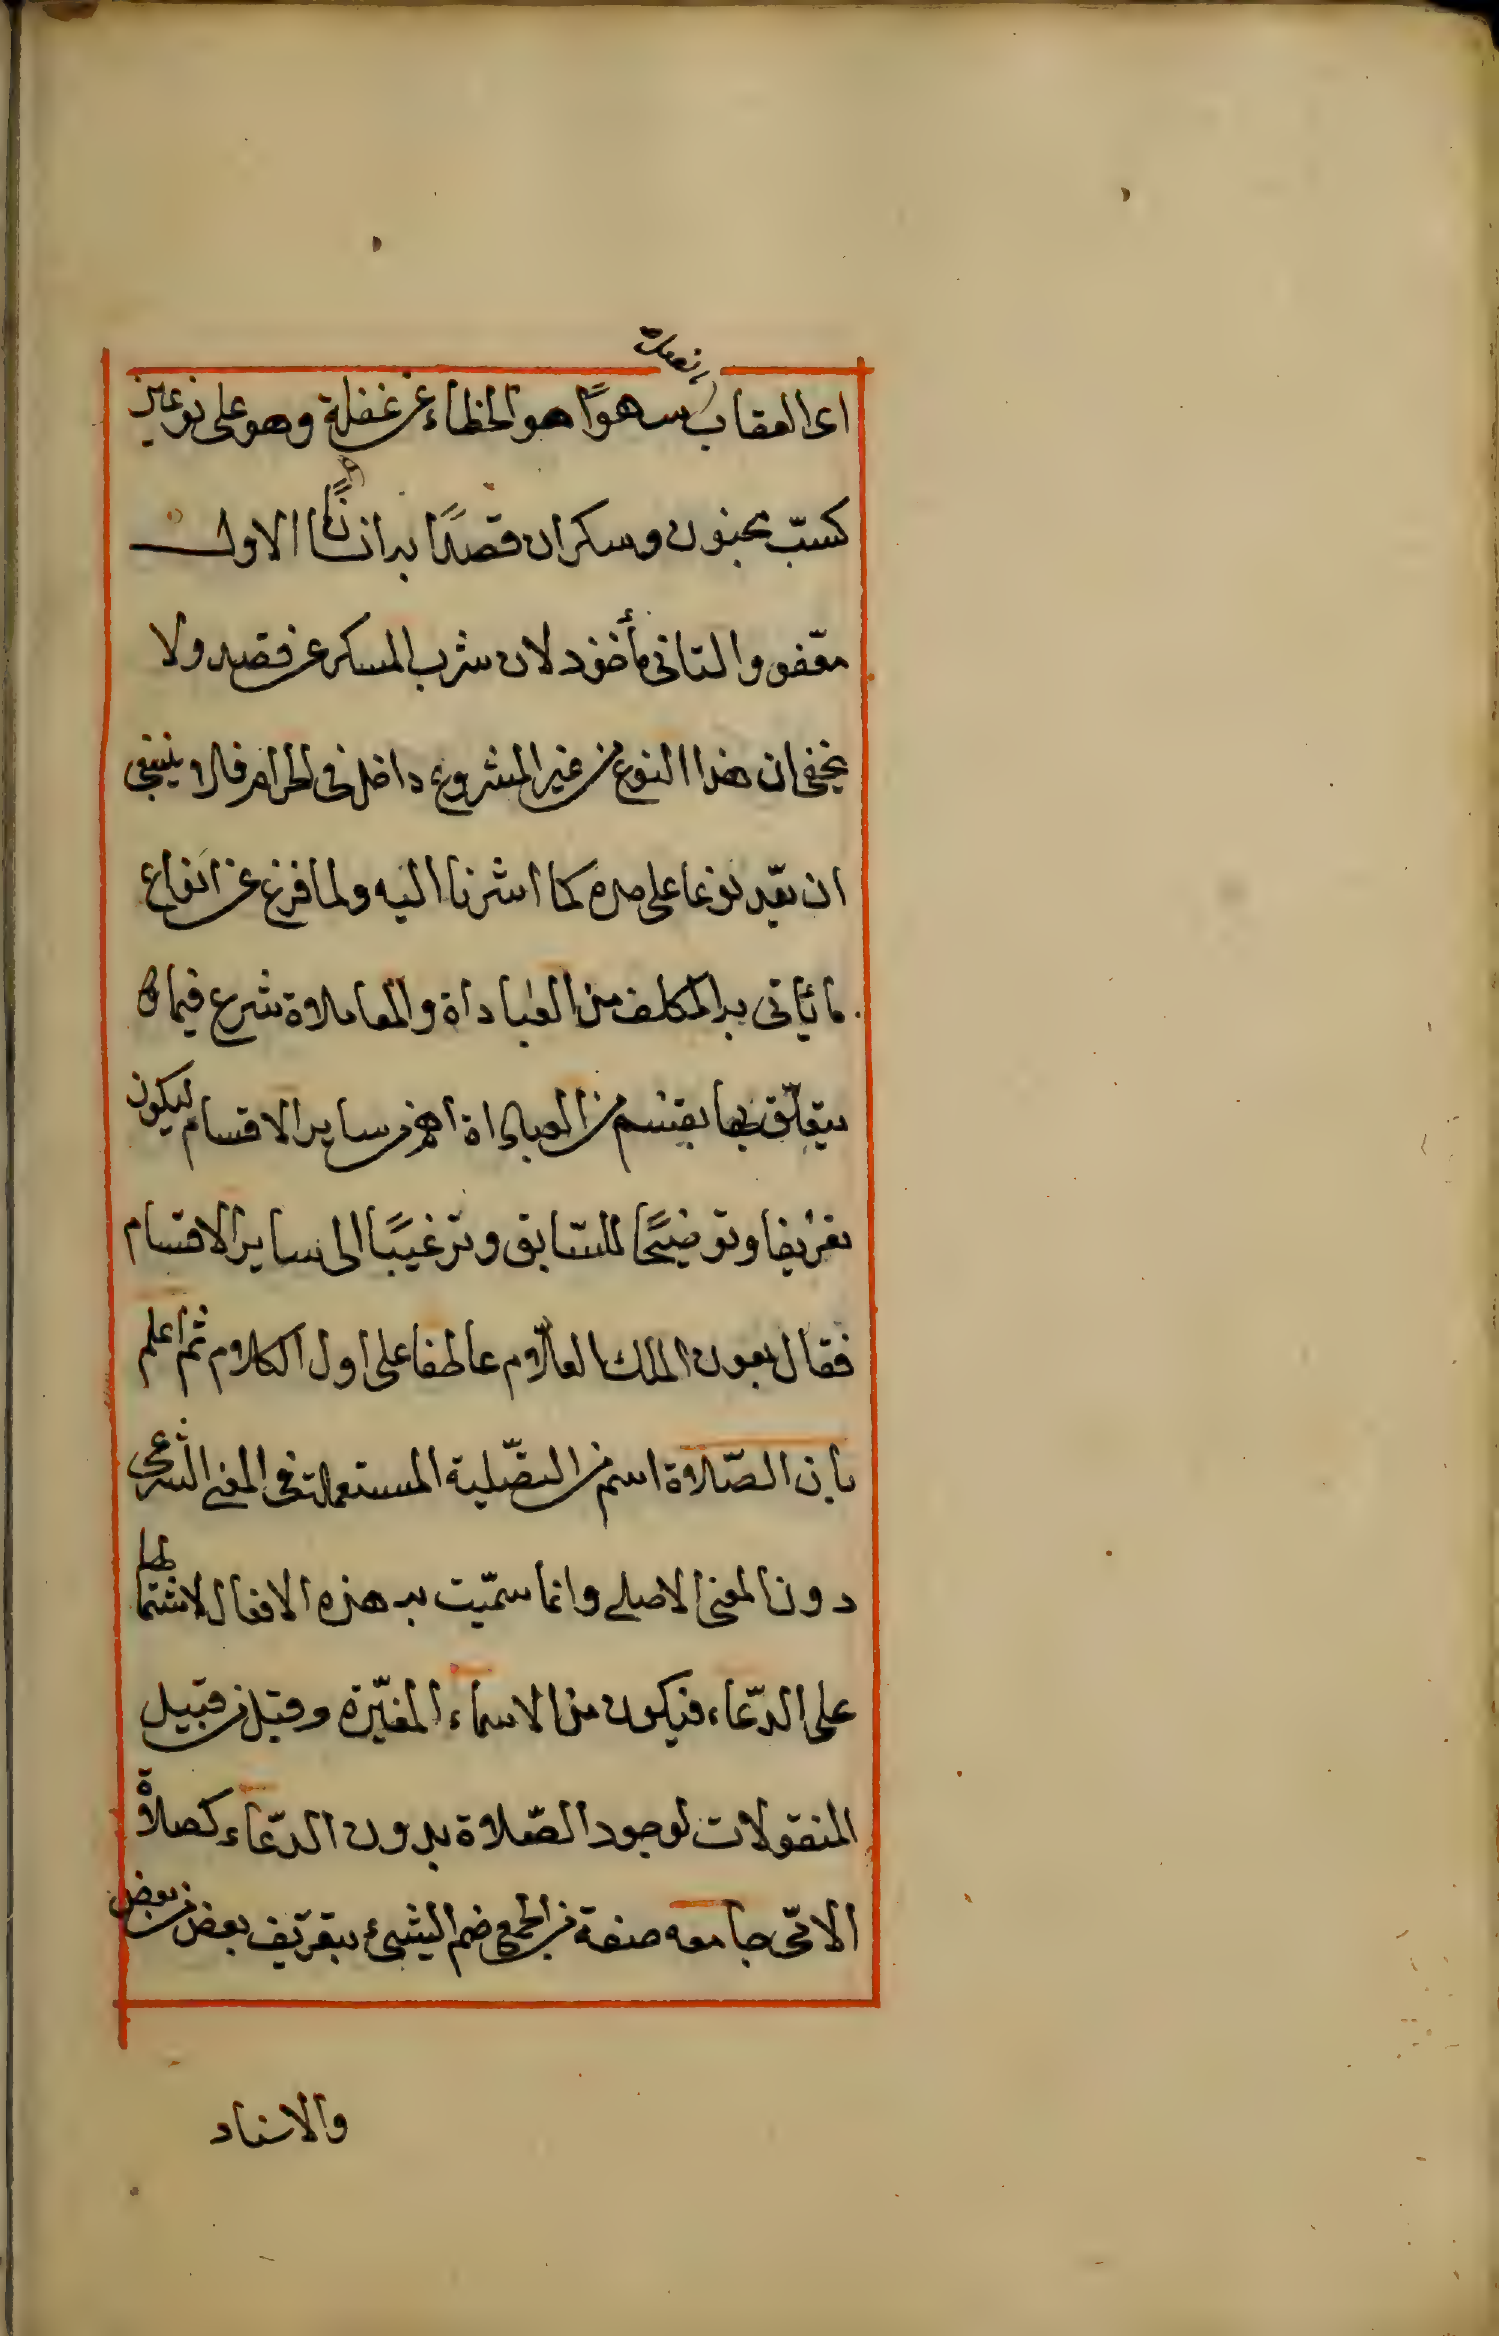 اى العقاب سهوًا هو الخطاء عن غفلة وهو على نوعين
كسبّ مجنون وسكران قصدًا بدا الاول
معفو والثانى مأخوذ لان شرب المسكر عن قصد ولا
يخفى ان هذا النوع من غير المشروع داخل فى الحرام فلا ينبغى
ان يعّد نوعا على حدة كما اشرنا اليه ولما فرغ عن انواع
ما يأتى به المكلف من العباداة والمعاملاة شرع فيما
يتعلّق بها بقسم من العباداة اهم من ساير الاقسام ليكون
تعريفا وتوضيحًا للسّابق وترغيبًا الى ساير الاقسام
فقال بعون الملك العلّام عاطفا على اول الكلام ثم اعلم
بان الصّلاوة اسم من التصّلية المستعملة فى المعنى الشرعى
دون المعنى الاصلى وانما سمّيت به هذه الافعال لاشتمالها
على الدّعاء فيكون من الاسماء المغيّرة وقيل من قبيل
المنقولات لوجود الصّلاوة بدون الدّعاء كصلاة
الامّى جامعه صنعة من الجمع ضم الشىء بتقريف بعض من بعض
والاسناد